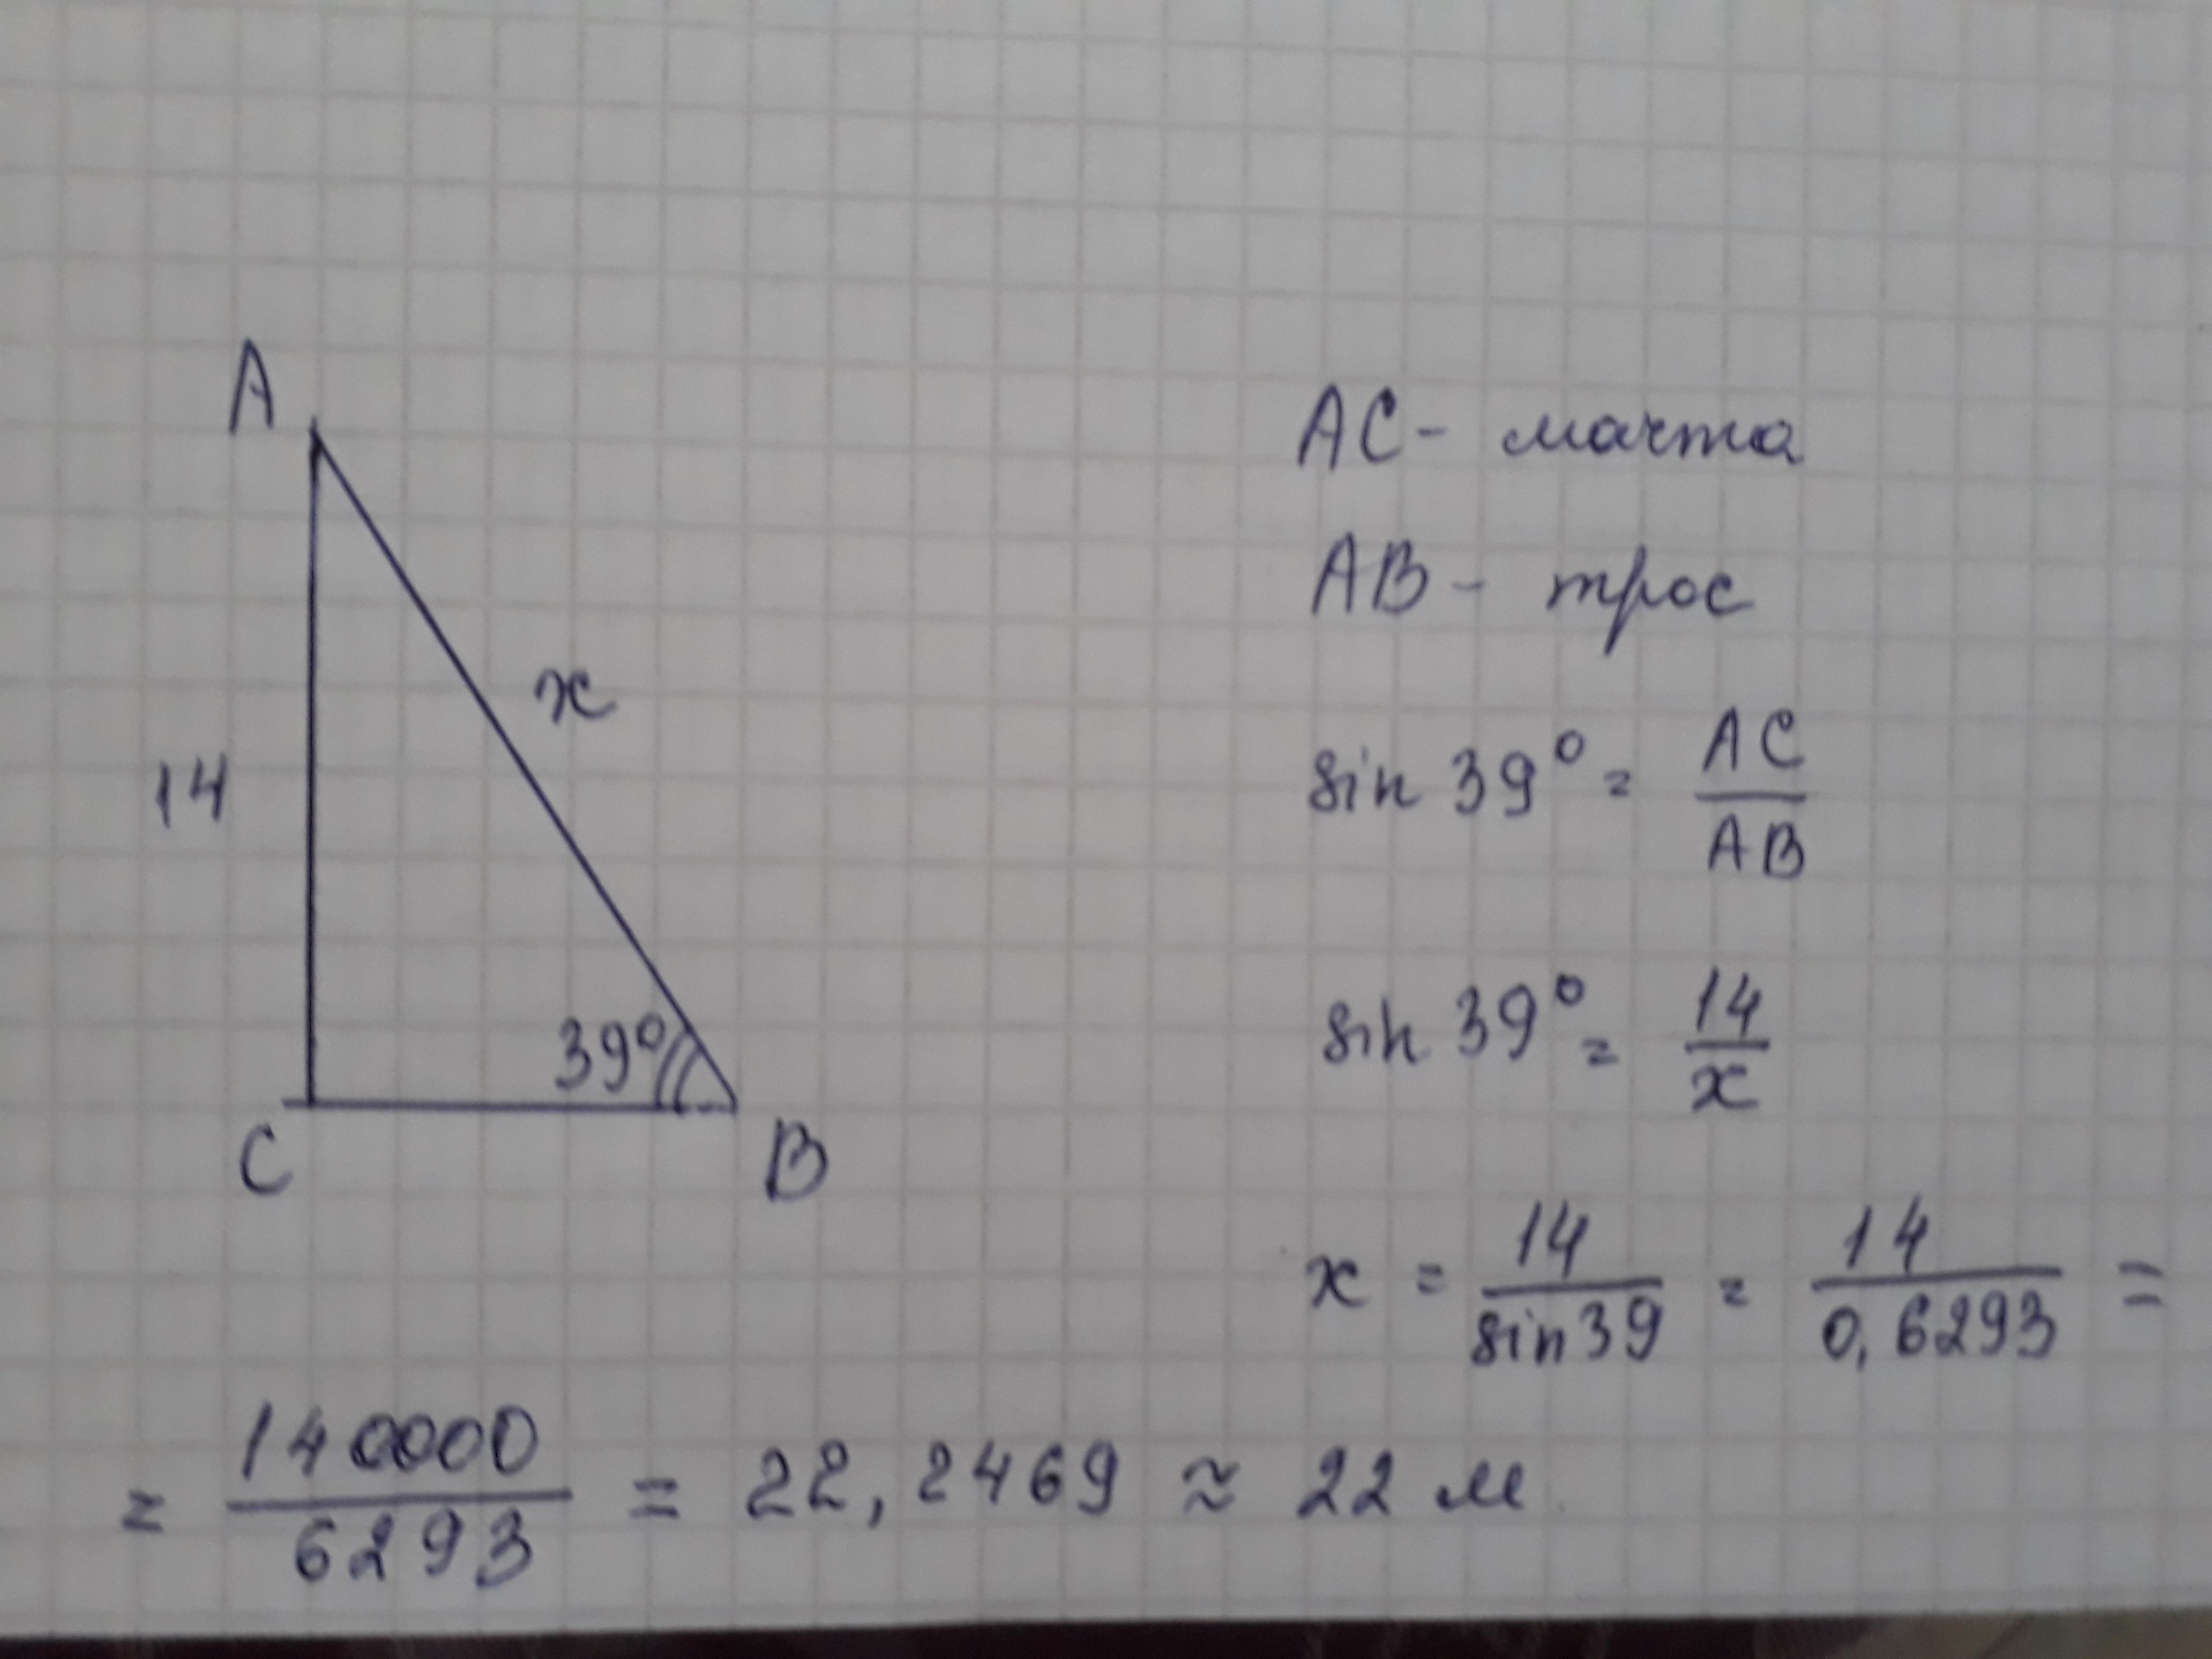 A
14
x
39°
C
B
AC - мачта
AB - трос
sin 39° = AC/AB
sin 39° = 14/x
x = 14/sin39 = 14/0,6293 =
= 140000/6293 = 22,2469 ≈ 22 м.